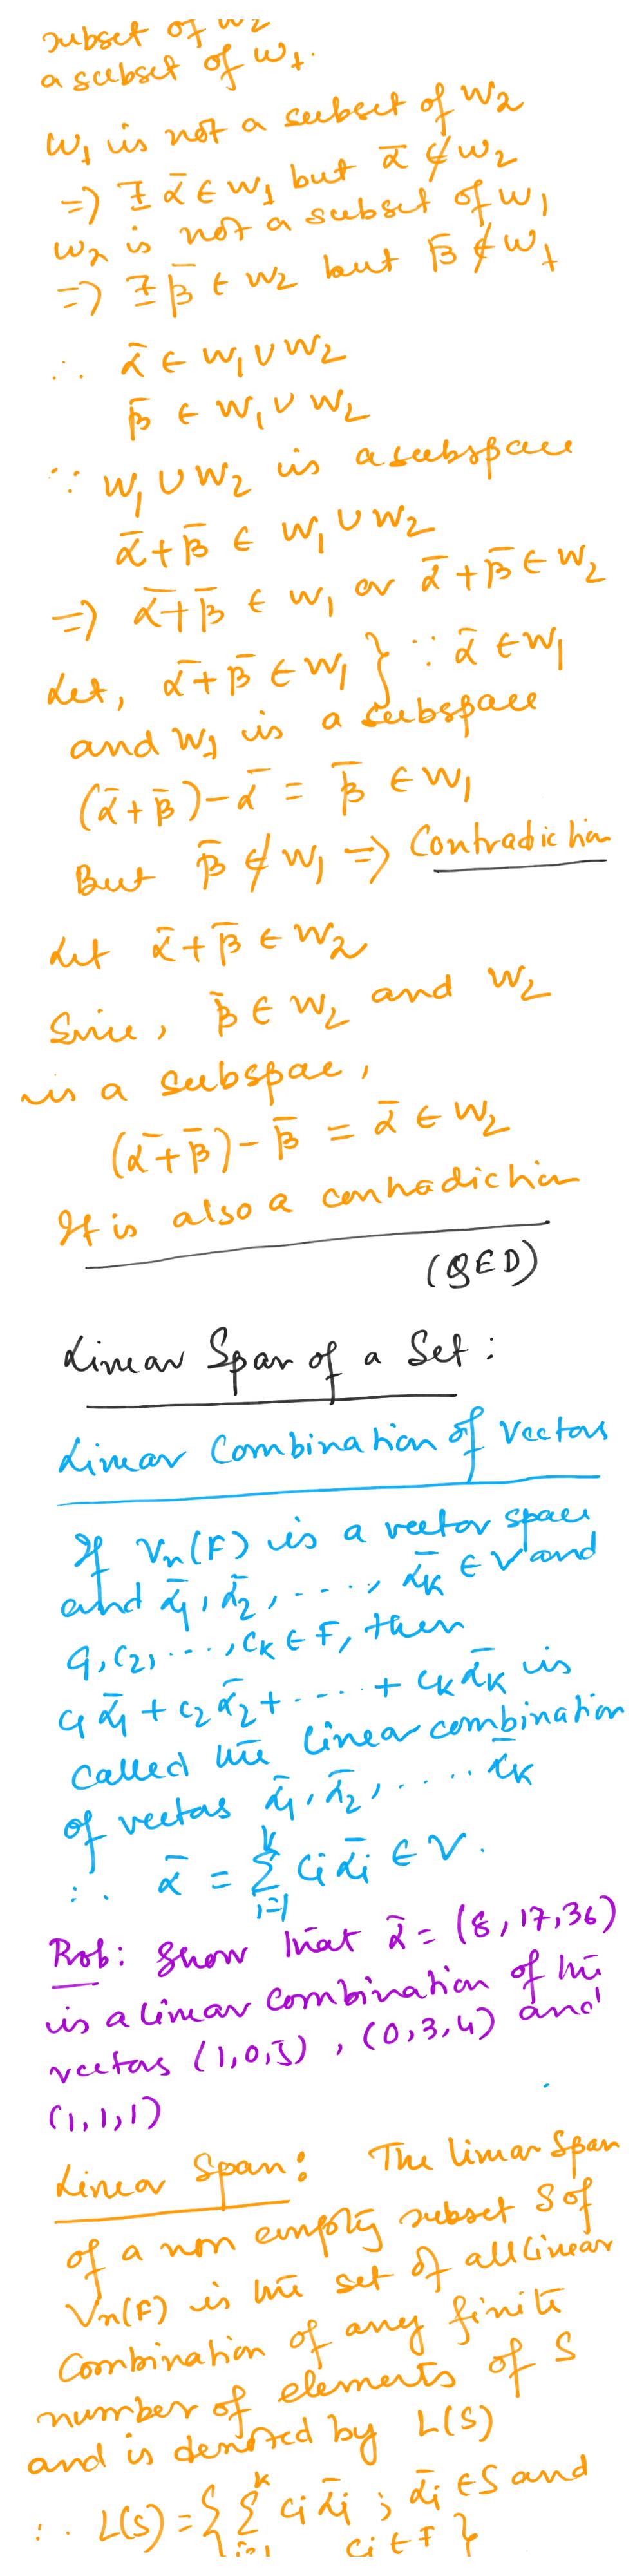 subset of W2
a subset of W1.
W1 is not a subset of W2
=> ∃ ᾱ ∈ W1 but ᾱ ∉ W2
W2 is not a subset of W1
=> ∃ β̄ ∈ W2 but β̄ ∉ W1
∴ ᾱ ∈ W1 ∪ W2
β̄ ∈ W1 ∪ W2
∵ W1 ∪ W2 is a subspace
ᾱ + β̄ ∈ W1 ∪ W2
=> ᾱ + β̄ ∈ W1 or ᾱ + β̄ ∈ W2
Let, ᾱ + β̄ ∈ W1 } ∵ ᾱ ∈ W1
and W1 is a subspace
(ᾱ + β̄) - ᾱ = β̄ ∈ W1
But β̄ ∉ W1 => Contradiction
Let ᾱ + β̄ ∈ W2
Since, β̄ ∈ W2 and W2
is a subspae,
(ᾱ + β̄) - β̄ = ᾱ ∈ W2
It is also a contradiction
(QED)
Linear Span of a Set :
Linear Combination of Vectors
If Vn(F) is a vector space
and ᾱ1, ᾱ2, ...., ᾱK ∈ V and
c1, c2, ..., cK ∈ F, then
c1 ᾱ1 + c2 ᾱ2 + .... + cK ᾱK is
called the linear combination
of vectors ᾱ1, ᾱ2, ..... ᾱK
∴ ᾱ = Σ_{i=1}^{K} ci ᾱi ∈ V.
Prob: Show that ᾱ = (8, 17, 36)
is a linear combination of the
vectors (1,0,5), (0,3,4) and
(1,1,1)
Linear Span: The linear Span
of a non empty subset S of
Vn(F) is the set of all linear
Combination of any finite
number of elements of S
and is denoted by L(S)
∴ L(S) = { Σ_{i=1}^{K} ci ᾱi ; ᾱi ∈ S and
ci ∈ F }